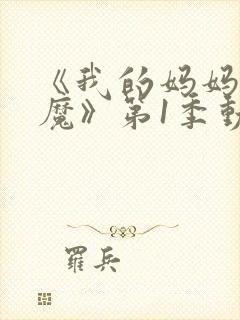 《我的妈妈
魔》第1季動
羅兵